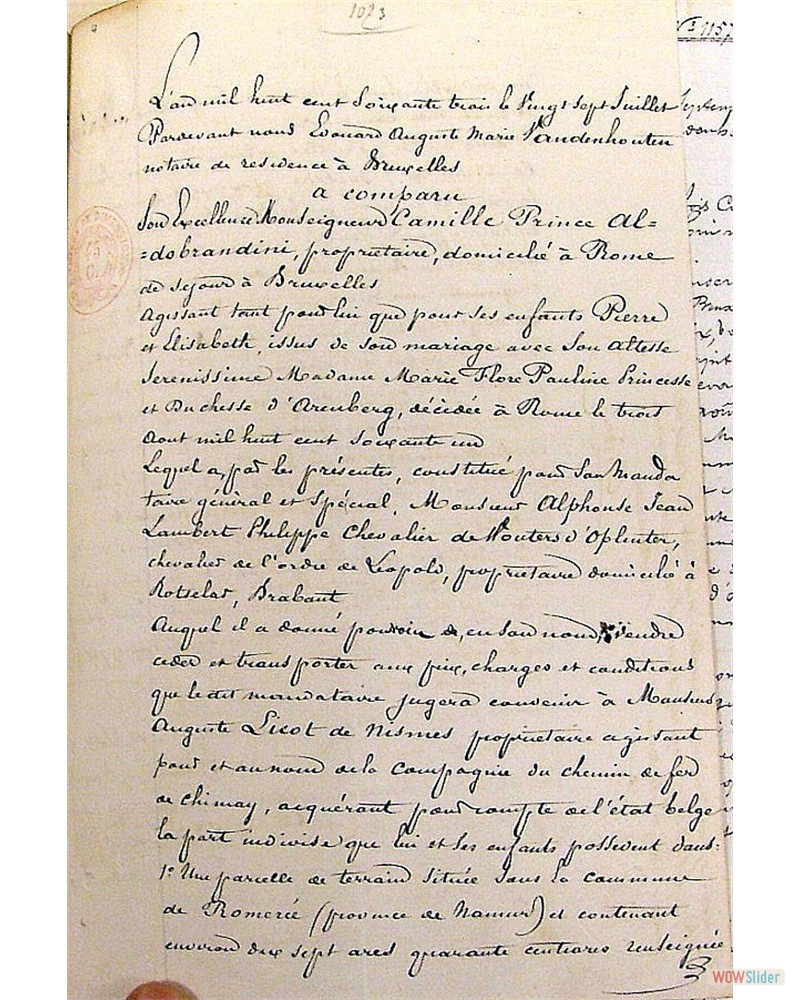 1073
N° 1157
L'an mil huit cent soixante trois le vingt sept Juillet
Pardevant nous Edouard Auguste Marie Vandenhouten
notaire de residence à Bruxelles
a comparu
Son Excellence Monseigneur Camille Prince Al=
=dobrandini, propriétaire, domicilié à Rome
de sejour à Bruxelles
Agissant tant pour lui que pour ses enfants Pierre
et Elisabeth, issus de son mariage avec Son Altesse
Serenissime Madame Marie Flore Pauline Princesse
et Duchesse d'Arenberg, décédée à Rome le trois
aout mil huit cent soixante un
Lequel a, par les présentes, constitué pour son manda
taire général et spécial, Monsieur Alphonse Jean
Lambert Philippe Chevalier de Wouters d'Oplinter,
chevalier de l'ordre de Léopold, propriétaire domicilié à
Rotselar, Brabant
Auquel il a donné pouvoir de, en son nom, vendre
ceder et transporter aux prix, charges et conditions
que le dit mandataire jugera convenir à Monsieur
Auguste Licot de Nismes propriétaire agissant
pour et au nom de la Compagnie du chemin de fer
de Chimay, acquérant pour compte de l'état belge
la part indivise que lui et ses enfants possedent dans:
1° Une parcelle de terrain située dans la commune
de Romerée (province de Namur) et contenant
environ dix sept ares quarante centiares renseignée
WOWSlider